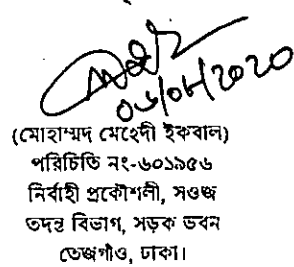 (মোহাম্মদ মেহেদী ইকবাল)
পরিচিতি নং-৬০১৯৫৬
নির্বাহী প্রকৌশলী, সওজ
তদন্ত বিভাগ, সড়ক ভবন
তেজগাঁও, ঢাকা।